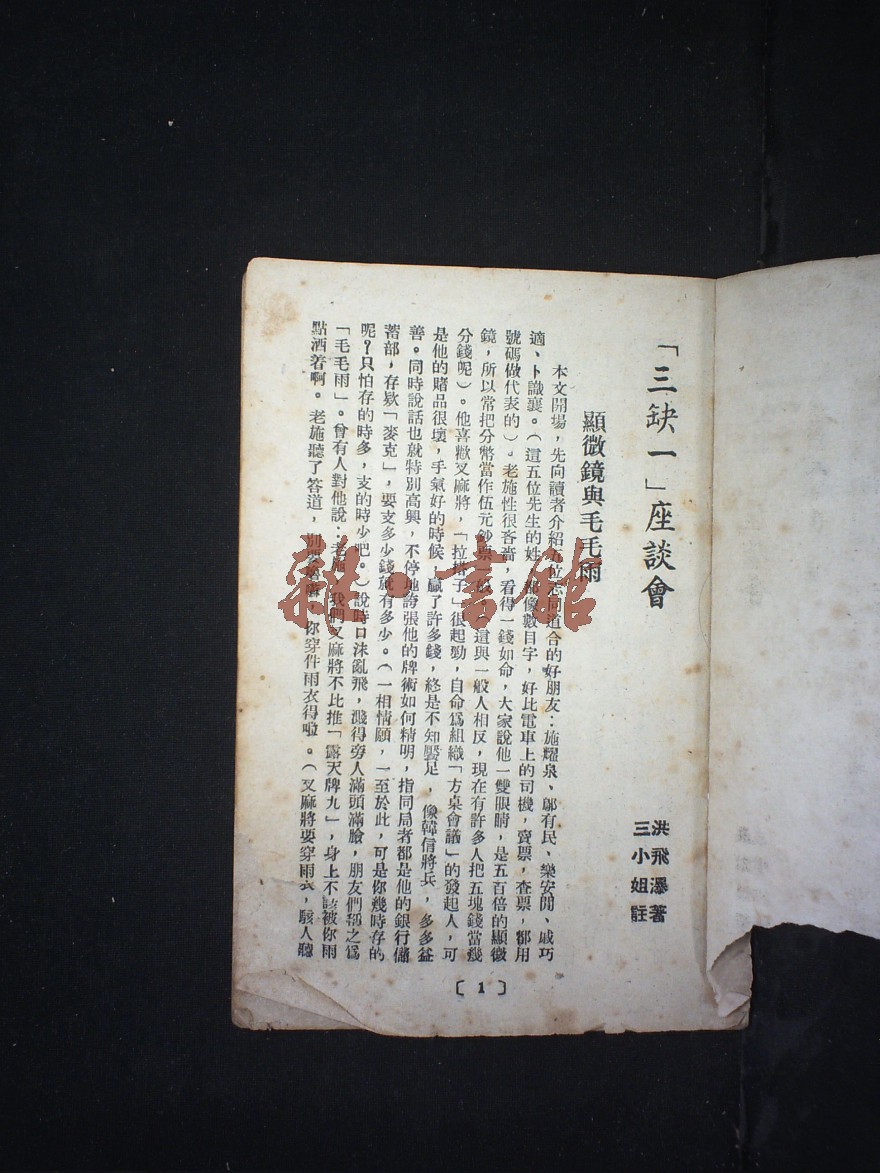 「三缺一」座談會
洪飛瀑著
三小姐註
顯微鏡與毛毛雨
本文開場，先向讀者介紹五位志同道合的好朋友：施耀泉、鄔有民、樂安閒、戚巧
適、卜識襄。（這五位先生的姓，都像數目字，好比電車上的司機，賣票，查票，都用
號碼做代表的）。老施性很吝嗇，看得一錢如命，大家說他一雙眼睛，是五百倍的顯微
鏡，所以常把分幣當作伍元鈔票一般，（這與一般人相反，現在有許多人把五塊錢當幾
分錢呢）。他喜歡叉麻將，「拉檯子」很起勁，自命爲組織「方桌會議」的發起人，可
是他的賭品很壞，手氣好的時候，贏了許多錢，終是不知饜足，像韓信將兵，多多益
善。同時說話也就特別高興，不停地誇張他的牌術如何精明，指同局者都是他的銀行儲
蓄部，存欵「麥克」，要支多少錢就有多少。（一相情願，一至於此，可是你幾時存的
呢？只怕存的時多，支的時少吧。）說時口沫亂飛，濺得旁人滿頭滿臉，朋友們稱之爲
「毛毛雨」。曾有人對他說：老施，我們叉麻將不比推「露天牌九」，身上不該被你雨
點洒着啊。老施聽了答道，別要 你穿件雨衣得啦。（叉麻將要穿雨衣，駭人聽
〔1〕
雜·書館